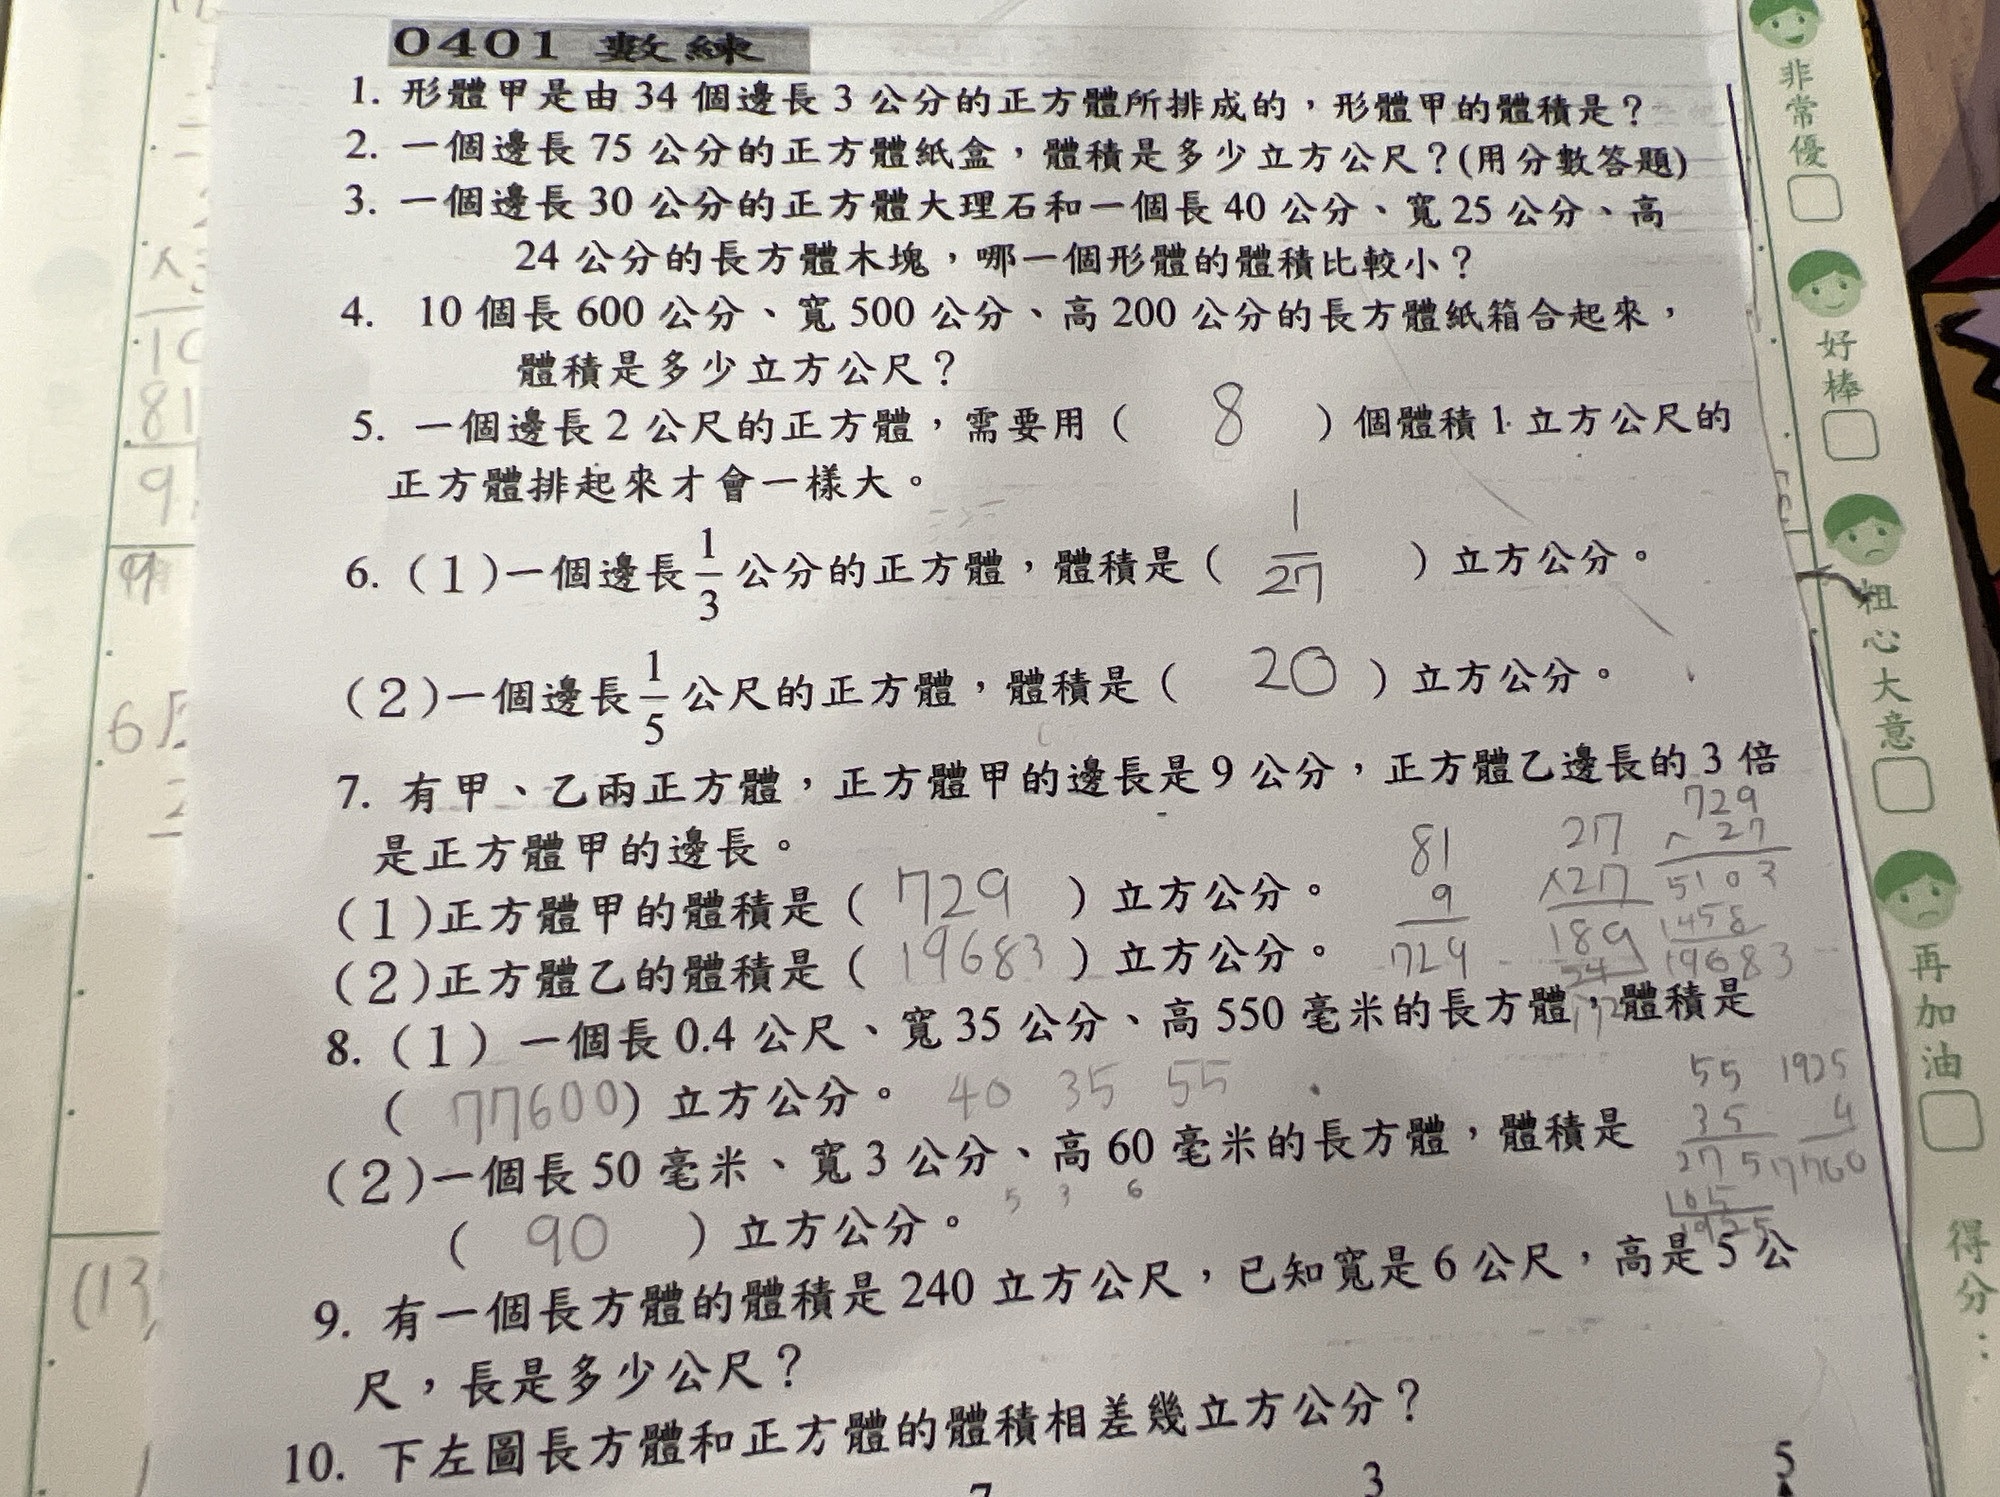 0401 數練
1. 形體甲是由 34 個邊長 3 公分的正方體所排成的，形體甲的體積是？
2. 一個邊長 75 公分的正方體紙盒，體積是多少立方公尺？(用分數答題)
3. 一個邊長 30 公分的正方體大理石和一個長 40 公分、寬 25 公分、高
24 公分的長方體木塊，哪一個形體的體積比較小？
4. 10 個長 600 公分、寬 500 公分、高 200 公分的長方體紙箱合起來，
體積是多少立方公尺？
5. 一個邊長 2 公尺的正方體，需要用（ 8 ）個體積 1 立方公尺的
正方體排起來才會一樣大。
6.（1）一個邊長 1/3 公分的正方體，體積是（ 1/27 ）立方公分。
（2）一個邊長 1/5 公尺的正方體，體積是（ 20 ）立方公分。
7. 有甲、乙兩正方體，正方體甲的邊長是 9 公分，正方體乙邊長的 3 倍
是正方體甲的邊長。
（1）正方體甲的體積是（ 729 ）立方公分。
（2）正方體乙的體積是（ 19683 ）立方公分。
81
9
729
27
×27
189
54
729
× 27
5103
1458
19683
8.（1）一個長 0.4 公尺、寬 35 公分、高 550 毫米的長方體，體積是
（ 77600 ）立方公分。 40 35 55
（2）一個長 50 毫米、寬 3 公分、高 60 毫米的長方體，體積是
5 3 6
（ 90 ）立方公分。
55
35
275
165
1925
1925
4
9. 有一個長方體的體積是 240 立方公尺，已知寬是 6 公尺，高是 5 公
尺，長是多少公尺？
10. 下左圖長方體和正方體的體積相差幾立方公分？
7 3 5
非常優
好棒
粗心大意
再加油
得分：